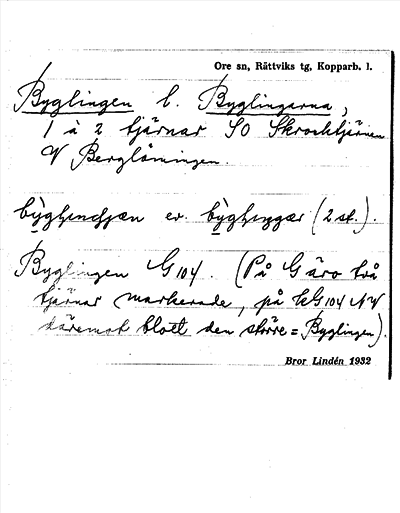 Ore sn, Rättviks tg, Kopparb. l.
Byglingen l. Byglingarna,
1 à 2 tjärnar SO Skrocktjärnen
V Berglöningen.
el. (2 st.).
Byglingen G 104. (På G äro två
tjärnar markerade, på kG 104 NV
däremot blott den större = Byglingen).
Bror Lindén 1932